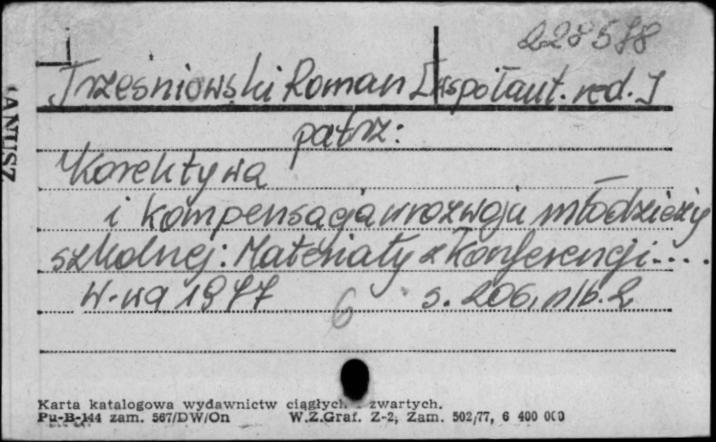 228578
Trześniowski Roman [współaut. red.]
patrz:
Korektywa
i kompensacja w rozwoju młodzieży
szkolnej: Materiały z Konferencji....
W-wa 1977 s. 206, nlb. 2
6
Karta katalogowa wydawnictw ciągłych i zwartych.
Pu-B-144 zam. 567/DW/On W.Z.Graf. Z-2, Zam. 502/77, 6 400 000
ANUSZ